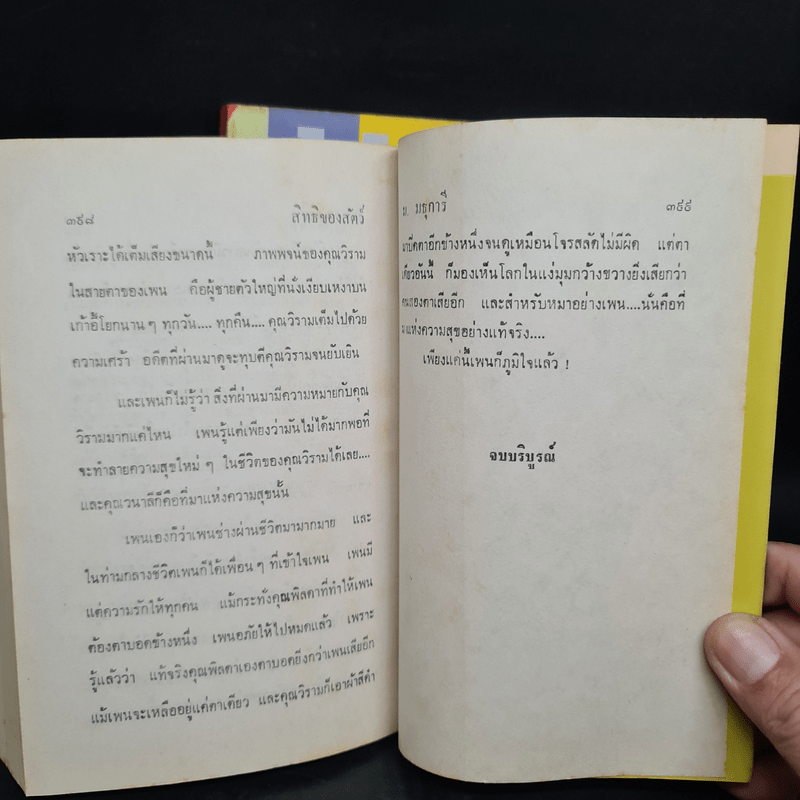 ๓๙๘ สิทธิของสัตว์
หัวเราะได้เต็มเสียงขนาดนี้ ภาพพจน์ของคุณวิราม
ในสายตาของเพน คือผู้ชายตัวใหญ่ที่นั่งเงียบเหงาบน
เก้าอี้โยกนาน ๆ ทุกวัน.... ทุกคืน.... คุณวิรามเต็มไปด้วย
ความเศร้า อดีตที่ผ่านมาดูจะทุบตีคุณวิรามจนยับเยิน
และเพนก็ไม่รู้ว่า สิ่งที่ผ่านมามีความหมายกับคุณ
วิรามมากแค่ไหน เพนรู้แต่เพียงว่ามันไม่ได้มากพอที่
จะทำลายความสุขใหม่ ๆ ในชีวิตของคุณวิรามได้เลย....
และคุณวนาลีก็คือที่มาแห่งความสุขนั้น
เพนเองก็ว่าเพนช่างผ่านชีวิตมามากมาย และ
ในท่ามกลางชีวิตเพนก็ได้เพื่อน ๆ ที่เข้าใจเพน เพนมี
แต่ความรักให้ทุกคน แม้กระทั่งคุณพิลดาที่ทำให้เพน
ต้องตาบอดข้างหนึ่ง เพนอภัยให้ไปหมดแล้ว เพราะ
รู้แล้วว่า แท้จริงคุณพิลดาเองตาบอดยิ่งกว่าเพนเสียอีก
แม้เพนจะเหลืออยู่แค่ตาเดียว และคุณวิรามก็เอาผ้าสีดำ
ม. มธุการี ๓๙๙
มาปิดตาอีกข้างหนึ่งจนดูเหมือนโจรสลัดไม่มีผิด แต่ตา
เดียวอันนี้ ก็มองเห็นโลกในแง่มุมกว้างขวางยิ่งเสียกว่า
คนสองตาเสียอีก และสำหรับหมาอย่างเพน....นั่นคือที่
มาแห่งความสุขอย่างแท้จริง....
เพียงแค่นี้เพนก็ภูมิใจแล้ว !
จบบริบูรณ์